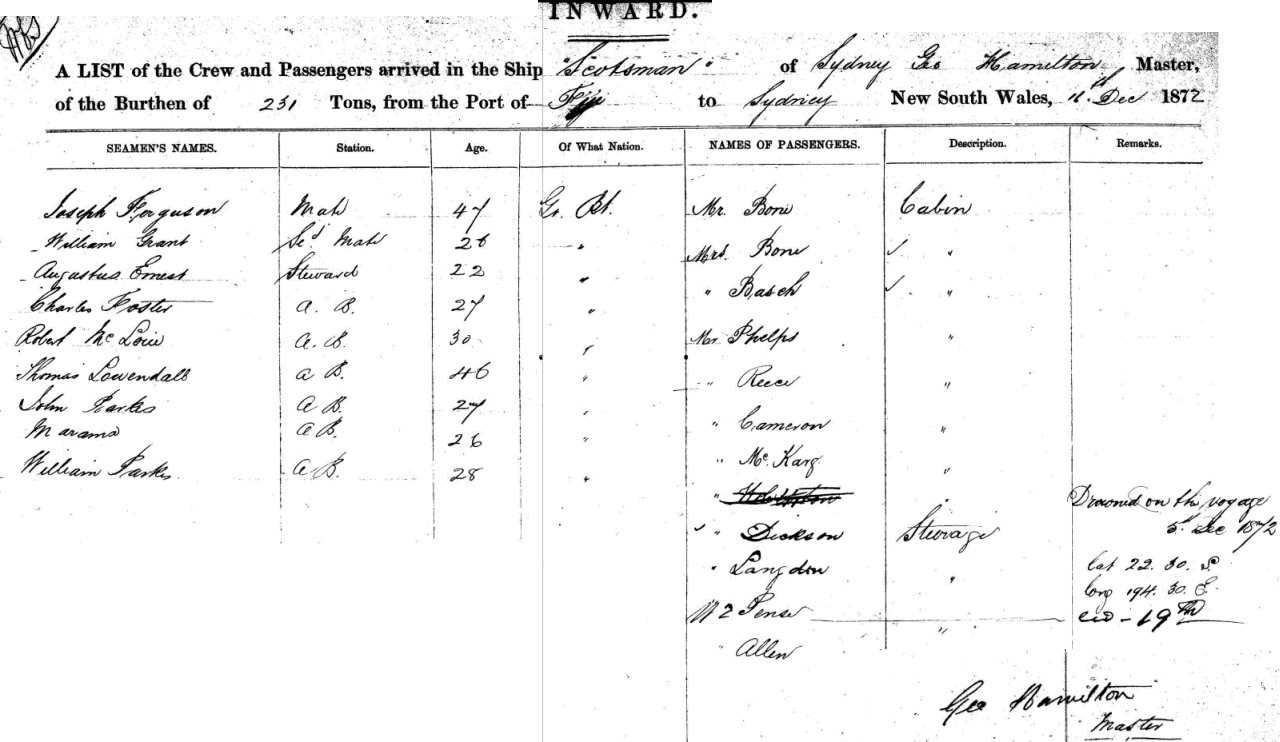 INWARD.
A LIST of the Crew and Passengers arrived in the Ship "Scotsman" of Sydney Geo Hamilton Master,
of the Burthen of 231 Tons, from the Port of Fiji to Sydney New South Wales, 11th Dec 1872
SEAMEN'S NAMES. Station. Age. Of What Nation. NAMES OF PASSENGERS. Description. Remarks.
Joseph Ferguson Mate 47 Gr. Bt. Mr. Bone Cabin
William Grant Secd Mate 26 " Mrs. Bone "
Augustus Ernest Steward 22 " " Basch "
Charles Foster A. B. 27 " Mr Phelps "
Robert Mc A. B. 30 " " Reece "
Thomas Lowendall A B. 46 " " Cameron "
John Parkes A B. 27 " " Mc Karg "
Marama A B. 26 " " " Drowned on the voyage
William Parkes. A B. 28 " " Dickson Steerage 5th Dec 1872
" Langdon " Lat 22. 30. S.
Pense " Long 194. 30. E.
" Allen 19th
Geo Hamilton
Master